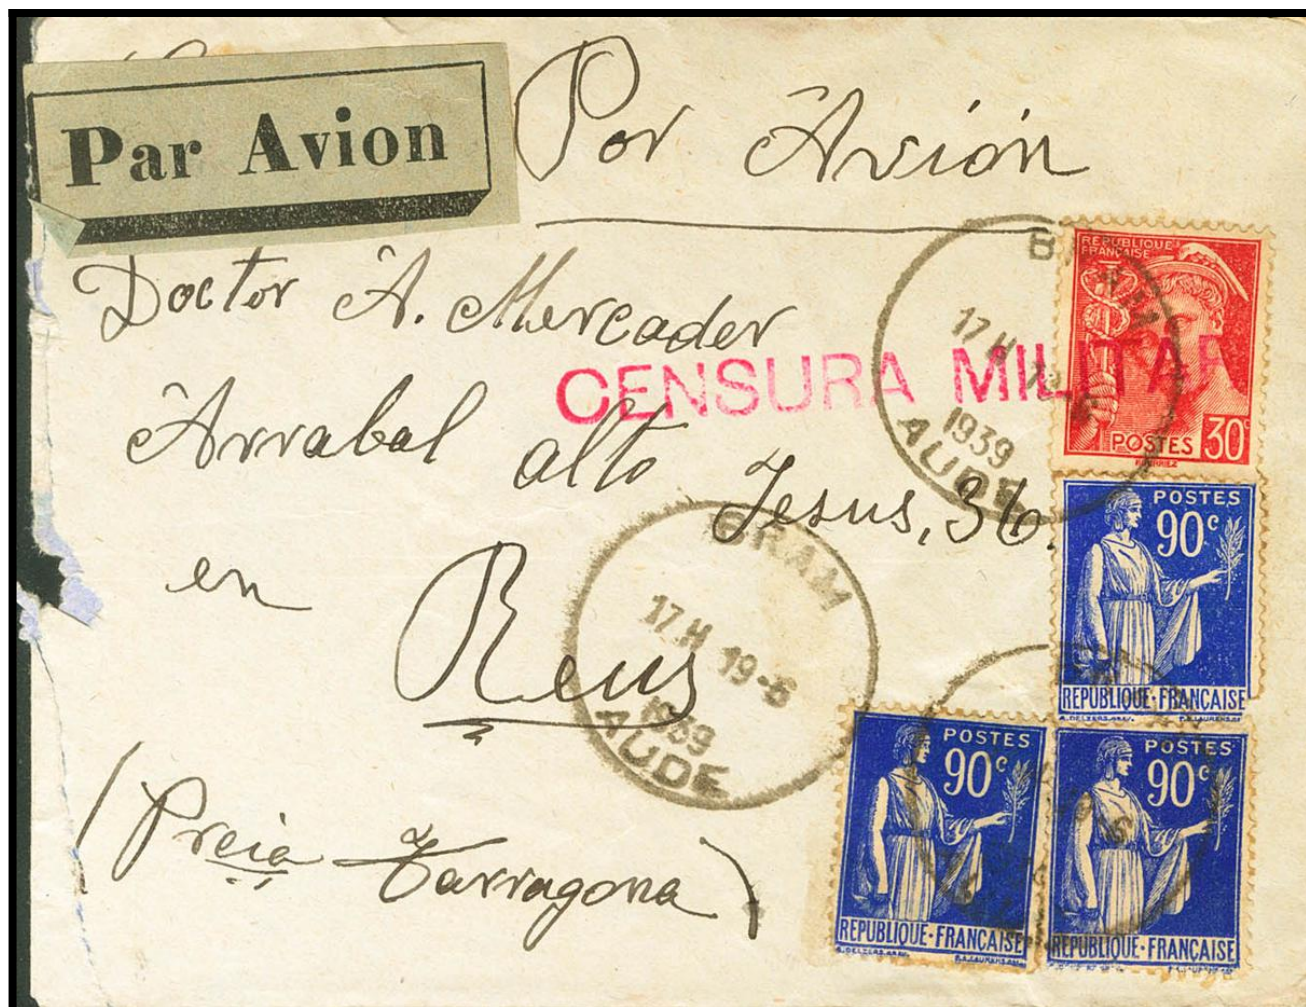 Par Avion
Por Avión
Doctor A. Mercader
CENSURA MILITAR
Arrabal alto Jesus, 36.
en
Reus
(Precia Tarragona)
BRAM
17H 19-6
1939
AUDE
BRAM
17H
1939
AUDE
REPUBLIQUE
FRANÇAISE
POSTES 30c
POSTES
90c
REPUBLIQUE·FRANÇAISE
POSTES
90c
REPUBLIQUE·FRANÇAISE
POSTES
90c
REPUBLIQUE·FRANÇAISE